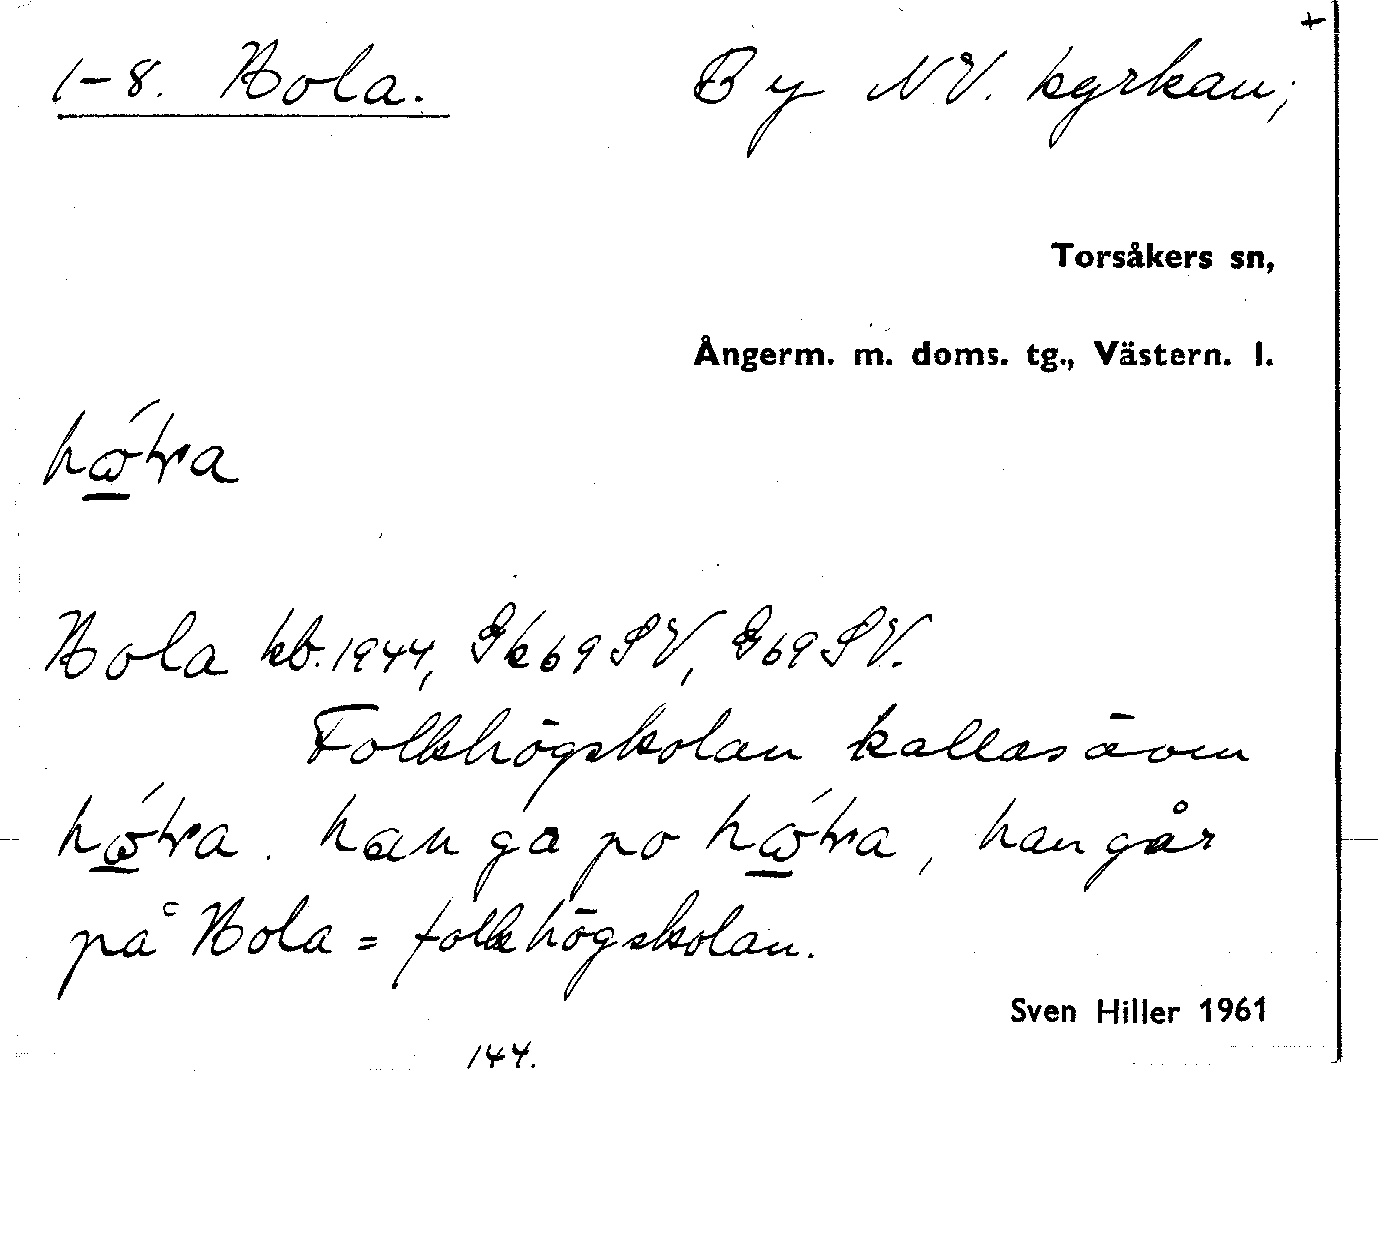 +
1-8. Hola. By NV. kyrkan;
Torsåkers sn,
Ångerm. m. doms. tg., Västern. l.
Hola kb. 1944, Gk 69 SV, G 69 SV.
Folkhögskolan kallas även
han ga po , han går
på Hola = folkhögskolan.
Sven Hiller 1961
144.